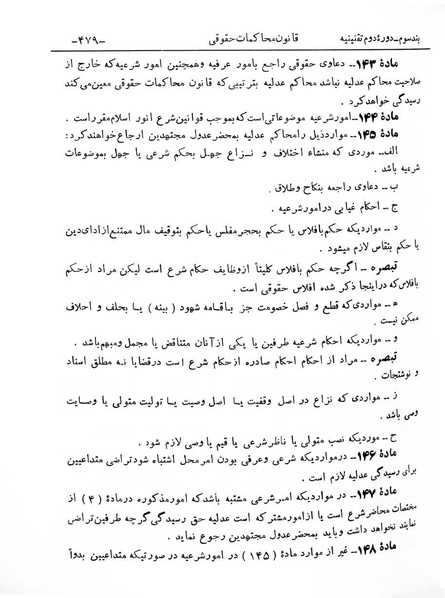 بند سوم ــ دورهٔ دوم تقنینیه
قانون محاکمات حقوقی
ــ ۴۷۹ ــ
مادهٔ ۱۴۳ــ دعاوی حقوقی راجع بامور عرفیه وهمچنین امور شرعیه که خارج از
صلاحیت محاکم عدلیه نباشد محاکم عدلیه بترتیبی که قانون محاکمات حقوقی معین می‌کند
رسیدگی خواهد کرد .
مادهٔ ۱۴۴ ــ امور شرعیه موضوعاتی است که بموجب قوانین شرع انور اسلام مقرر است .
مادهٔ ۱۴۵ ــ موارد ذیل را محاکم عدلیه بمحضر عدول مجتهدین ارجاع خواهند کرد :
الف ــ موردی که منشاء اختلاف و نزاع جهل بحکم شرعی یا جهل بموضوعات
شرعیه باشد .
ب ــ دعاوی راجعه بنکاح وطلاق .
ج ــ احکام غیابی در امور شرعیه .
د ــ مواردیکه حکم بافلاس یا حکم بحجر مفلس یا حکم بتوقیف مال ممتنع از ادای دین
یا حکم بتقاص لازم میشود .
تبصره ــ اگرچه حکم بافلاس کلیتاً از وظایف حکام شرع است لیکن مراد از حکم
بافلاس که در اینجا ذکر شده افلاس حقوقی است .
ه ــ مواردی که قطع و فصل خصومت جز باقامه شهود ( بینه ) یا بحلف و احلاف
ممکن نیست .
و ــ مواردیکه احکام شرعیه طرفین یا یکی از آنان متناقض یا مجمل ومبهم باشد .
تبصره ــ مراد از احکام احکام صادره از حکام شرع است در قضایا نه مطلق اسناد
و نوشتجات .
ز ــ مواردی که نزاع در اصل وقفیت یا اصل وصیت یا تولیت متولی یا وصایت
وصی باشد .
ح ــ موردیکه نصب متولی یا ناظر شرعی یا قیم یا وصی لازم شود .
مادهٔ ۱۴۶ ــ در مواردیکه شرعی وعرفی بودن امر محل اشتباه شود تراضی متداعیین
برای رسیدگی عدلیه لازم است .
مادهٔ ۱۴۷ ــ در مواردیکه امر شرعی مشتبه باشد که امور مذکوره در مادهٔ ( ۴ ) از
مختصات محاضر شرع است یا از امور مشترکه است عدلیه حق رسیدگی گرچه طرفین تراضی
نمایند نخواهد داشت و باید بمحضر عدول مجتهدین رجوع نماید .
مادهٔ ۱۴۸ ــ غیر از موارد مادهٔ ( ۱۴۵ ) در امور شرعیه در صورتیکه متداعیین بدواً